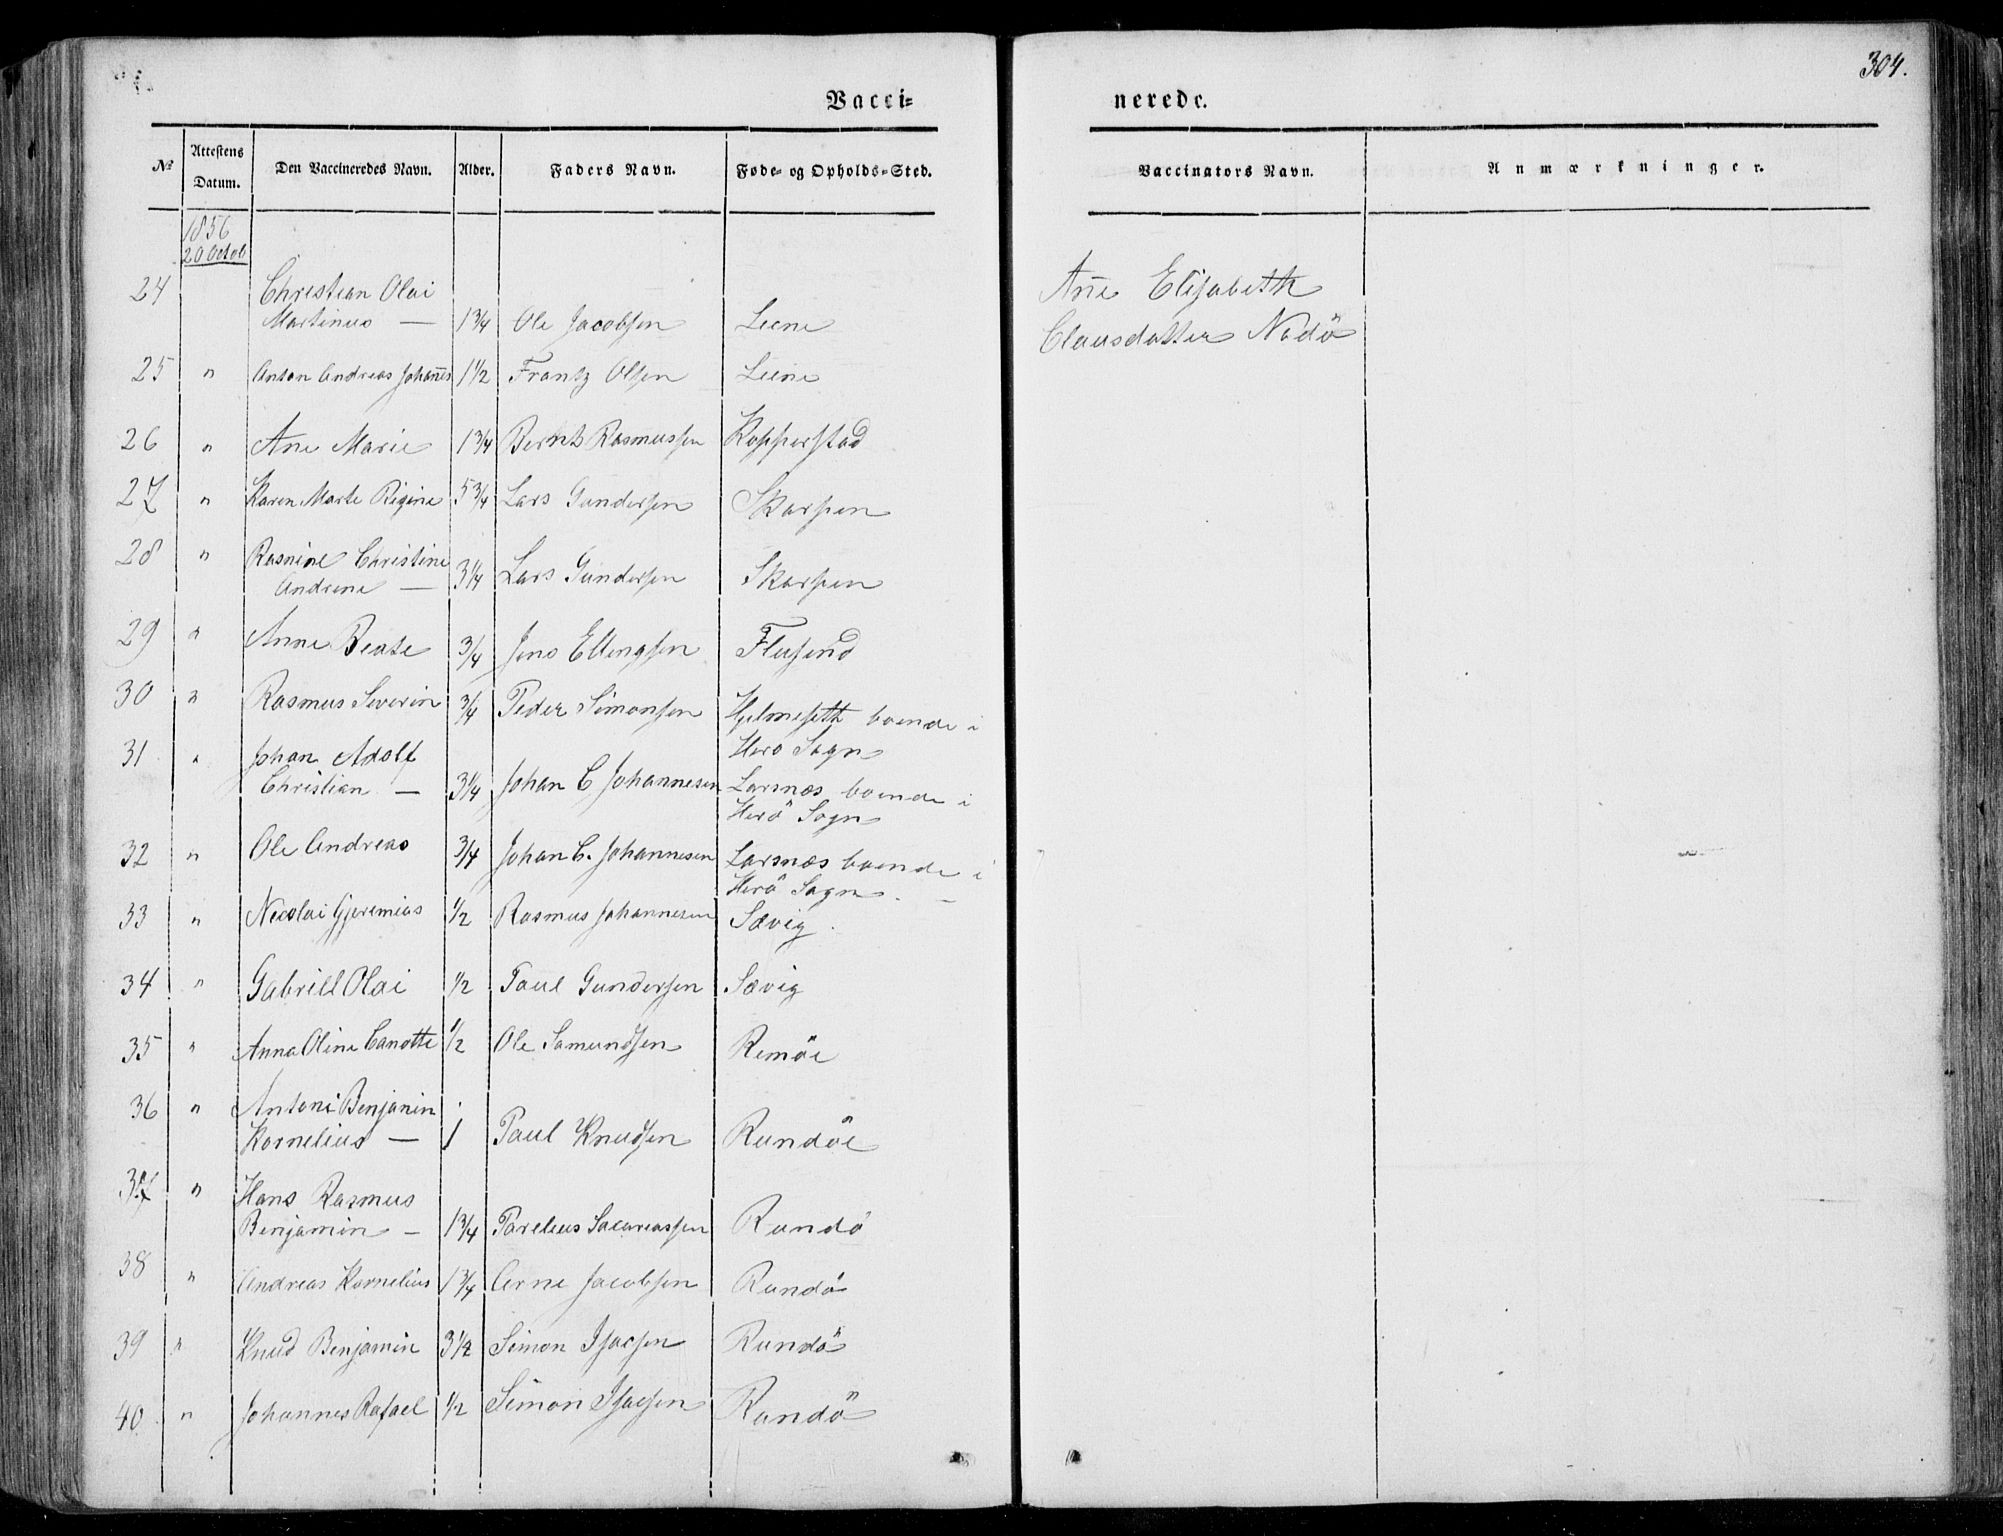 304.
Vacci=
nerede.
No Attestens Datum. Den Vaccineredes Navn. Alder. Faders Navn. Føde- og Opholds-Sted. Vaccinators Navn. Anmærkninger.
1856
20 Octob
24 Christian Olai
Martinus — 1¾ Ole Jacobsen Leene
Añe Elisabeth
Clausdatter Nodö
25 " Anton Andreas Johañes 1½ Frantz Olsen Leene
26 " Ane Marie 1¾ Bernt Rasmussen Kopperstad
27 " Karen Marte Rigine 5¾ Lars Gundersen Skarpen
28 " Rasmine Christine
Andrene — 3¼ Lars Gundersen Skarpen
29 " Anne Beate ¾ Jens Ellingsen Flusund
30 " Rasmus Severin ¾ Peder Simonsen Hjelmesett boende i
Herö Sogn
31 " Johan Adolf
Christian — 3¼ Johan C Johannesen Larsnæs boende i
Herö Sogn
32 " Ole Andreas ¾ Johan C. Johannesen Larsnæs boende i
Herö Sogn. —
33 " Nicolai Gjeremias ½ Rasmus Johannesen Sævig.
34 " Gabriel Olai ½ Paul Gundersen Sævig
35 " Anna Oline Canotte ½ Ole Samundsen Remöe
36 " Antoni Benjamin
Kornelius — 1 Paul Knudsen Rundöe
37 " Hans Rasmus
Benjamin — 1¾ Parelius Sacariassen Rundö
38 " Andreas Kornelius 1¾ Arne Jacobsen Rundö
39 " Knud Benjamin 3½ Simon Isacsen Rundö
40. " Johannes Rafael ½ Simon Isacsen Rundö